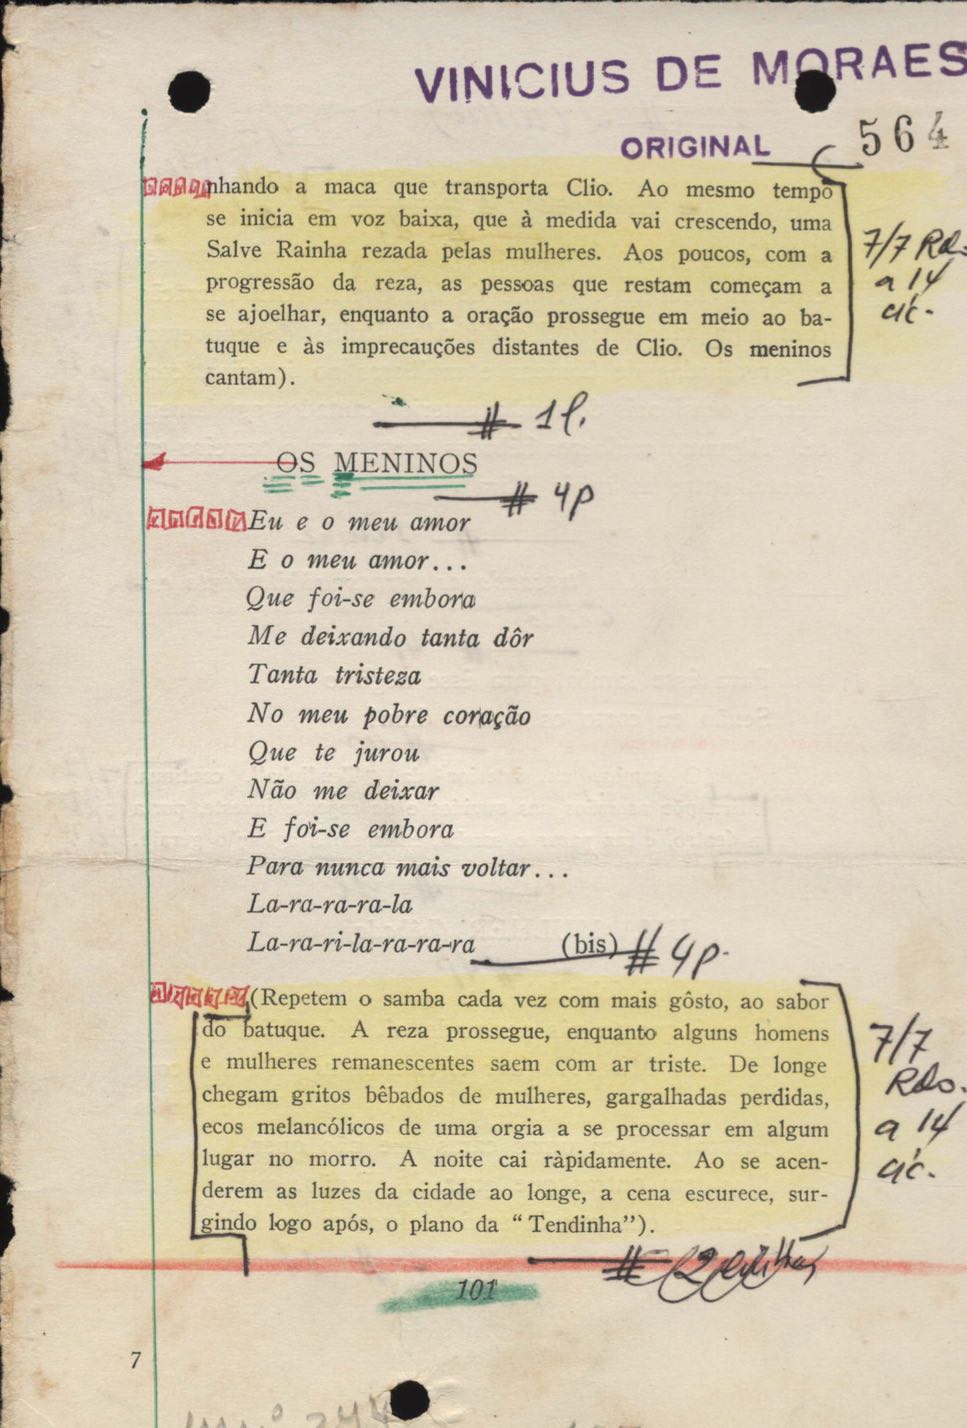 VINICIUS DE MORAES
ORIGINAL
564
nhando a maca que transporta Clio. Ao mesmo tempo
se inicia em voz baixa, que à medida vai crescendo, uma
Salve Rainha rezada pelas mulheres. Aos poucos, com a
progressão da reza, as pessoas que restam começam a
se ajoelhar, enquanto a oração prossegue em meio ao ba-
tuque e às imprecauções distantes de Clio. Os meninos
cantam).
7/7 Rds.
a 14
cíc.
# 1 l.
OS MENINOS
# 4p
Eu e o meu amor
E o meu amor...
Que foi-se embora
Me deixando tanta dôr
Tanta tristeza
No meu pobre coração
Que te jurou
Não me deixar
E foi-se embora
Para nunca mais voltar...
La-ra-ra-ra-la
La-ra-ri-la-ra-ra-ra (bis) # 4p.
(Repetem o samba cada vez com mais gôsto, ao sabor
do batuque. A reza prossegue, enquanto alguns homens
e mulheres remanescentes saem com ar triste. De longe
chegam gritos bêbados de mulheres, gargalhadas perdidas,
ecos melancólicos de uma orgia a se processar em algum
lugar no morro. A noite cai ràpidamente. Ao se acen-
derem as luzes da cidade ao longe, a cena escurece, sur-
gindo logo após, o plano da "Tendinha").
7/7
Rds.
a 14
cíc.
#
101
7